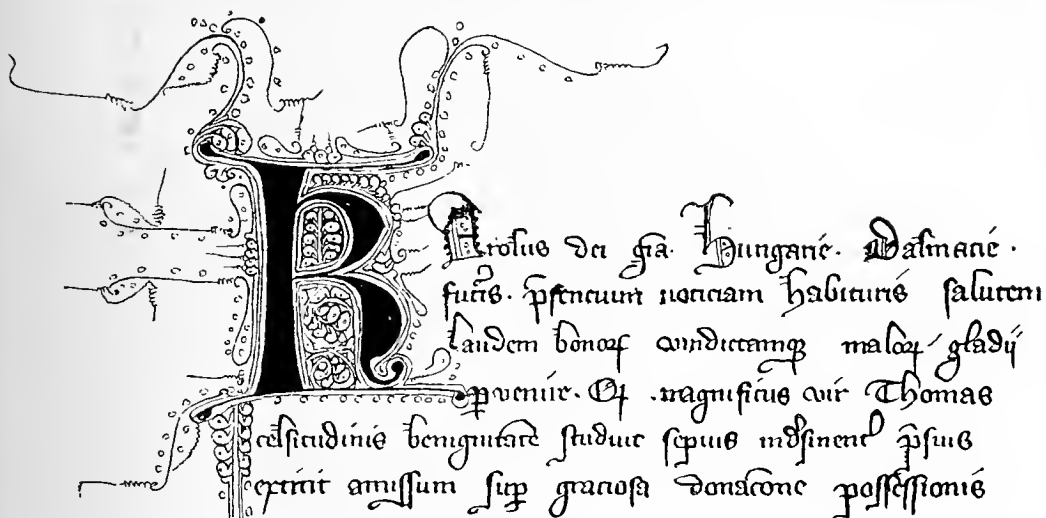 KArolus dei gr̄a. Hungarie. Dalmacie.
fut̄is. p̄sencium noticiam habituris salutem
laudem bonoꝝ vindictamqꝫ maloꝝ gladii
ꝑvenire. Qꝫ magnificus vir Thomas
celsitudinis benignitatē studuit sepius
extitit amissum suꝑ graciosa donacōne possessionis